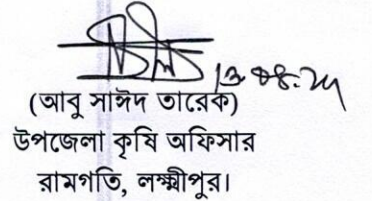 (আবু সাঈদ তারেক)
উপজেলা কৃষি অফিসার
রামগতি, লক্ষ্মীপুর।